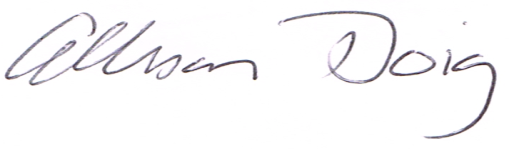 Allison Doig